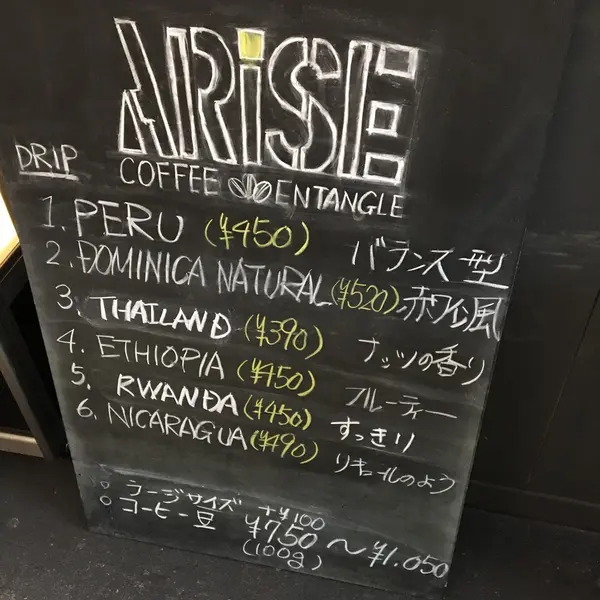 ARiSE
COFFEE ENTANGLE
DRIP
1. PERU (¥450) バランス型
2. DOMINICA NATURAL (¥520) 赤ワイン風
3. THAILAND (¥390) ナッツの香り
4. ETHIOPIA (¥450) フルーティー
5. RWANDA (¥450) すっきり
6. NICARAGUA (¥490) リキュールのよう
○ ラージサイズ +¥100
○ コーヒー豆 ¥750 〜 ¥1.050
(100g)